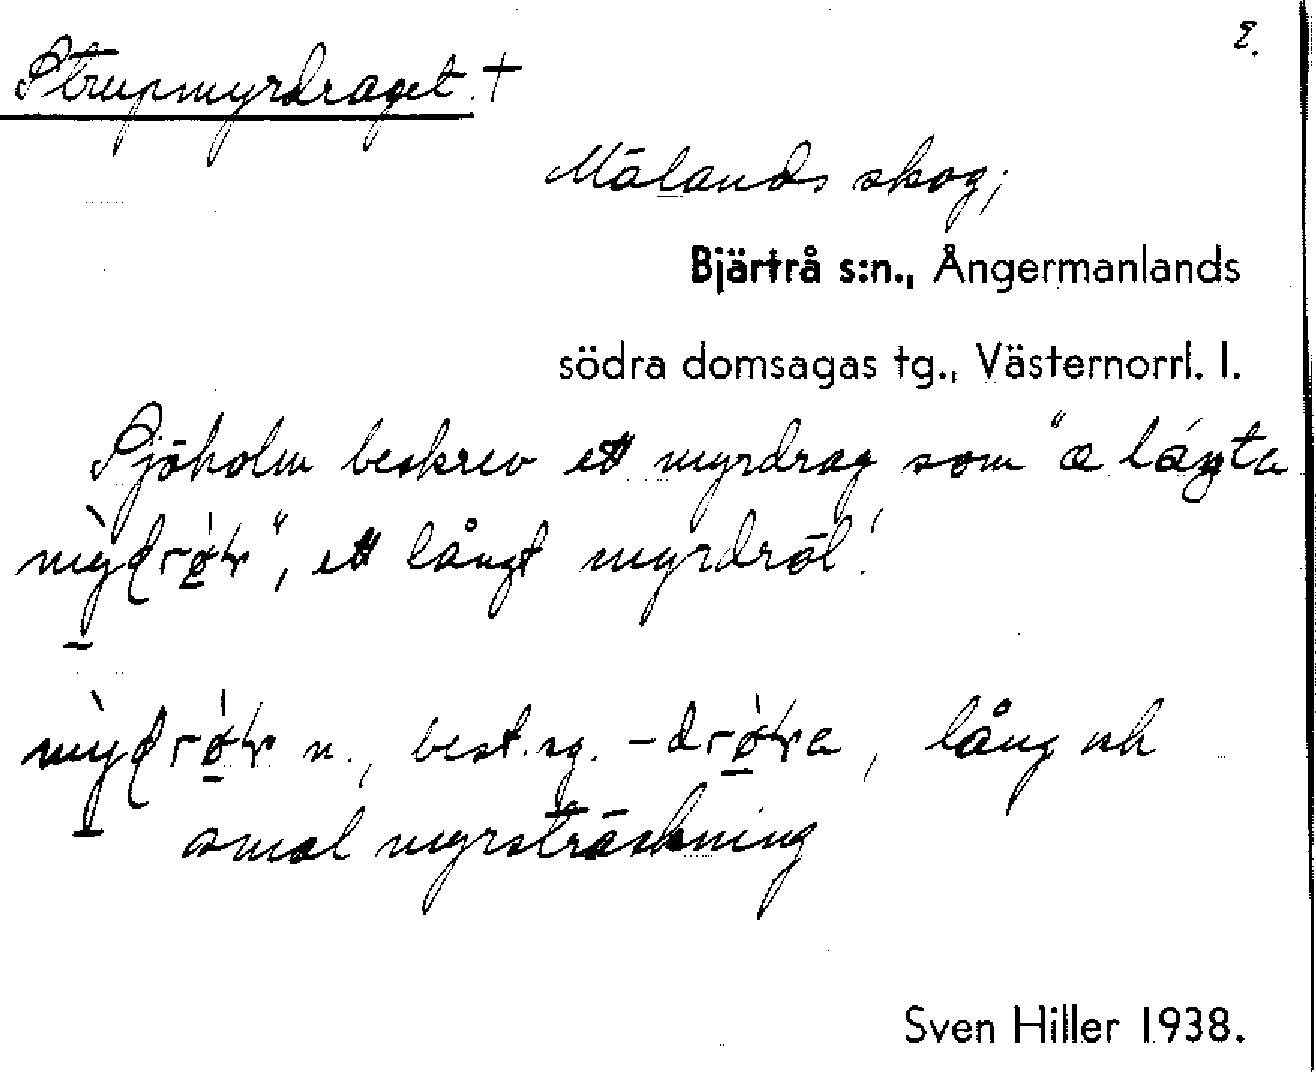 2.
Strupmyrdraget. +
Mälands skog;
Bjärtrå s:n., Ångermanlands
södra domsagas tg., Västernorrl. l.
Sjöholm beskrev ett myrdrag som "æ láŋta
", ett långt myrdröl!
n., best. sg. , lång och
smal myrsträckning
Sven Hiller 1938.